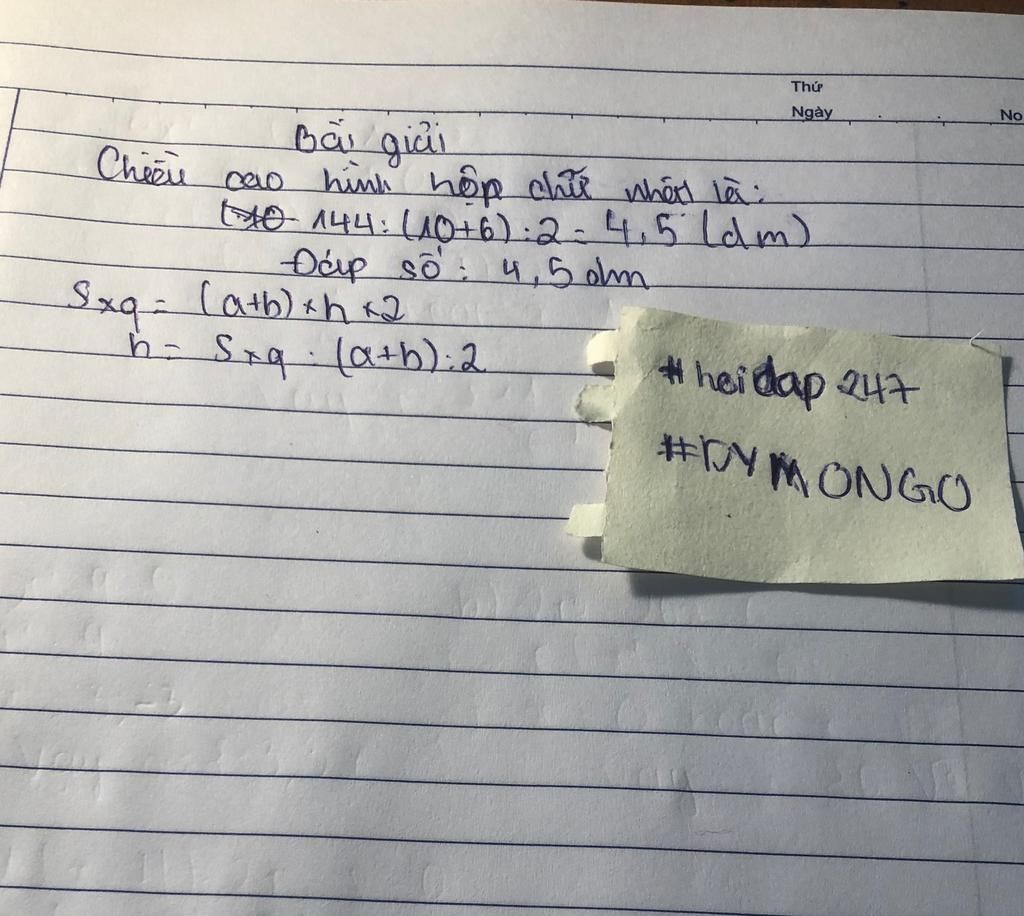 Thứ
Ngày No
Bài giải
Chiều cao hình hộp chữ nhật là:
144: (10+6) :2 = 4,5 (dm)
Đáp số: 4,5 dm
Sxq = (a+b) × h × 2
h = Sxq : (a+b) : 2
#hoidap 247
#DYMONGO